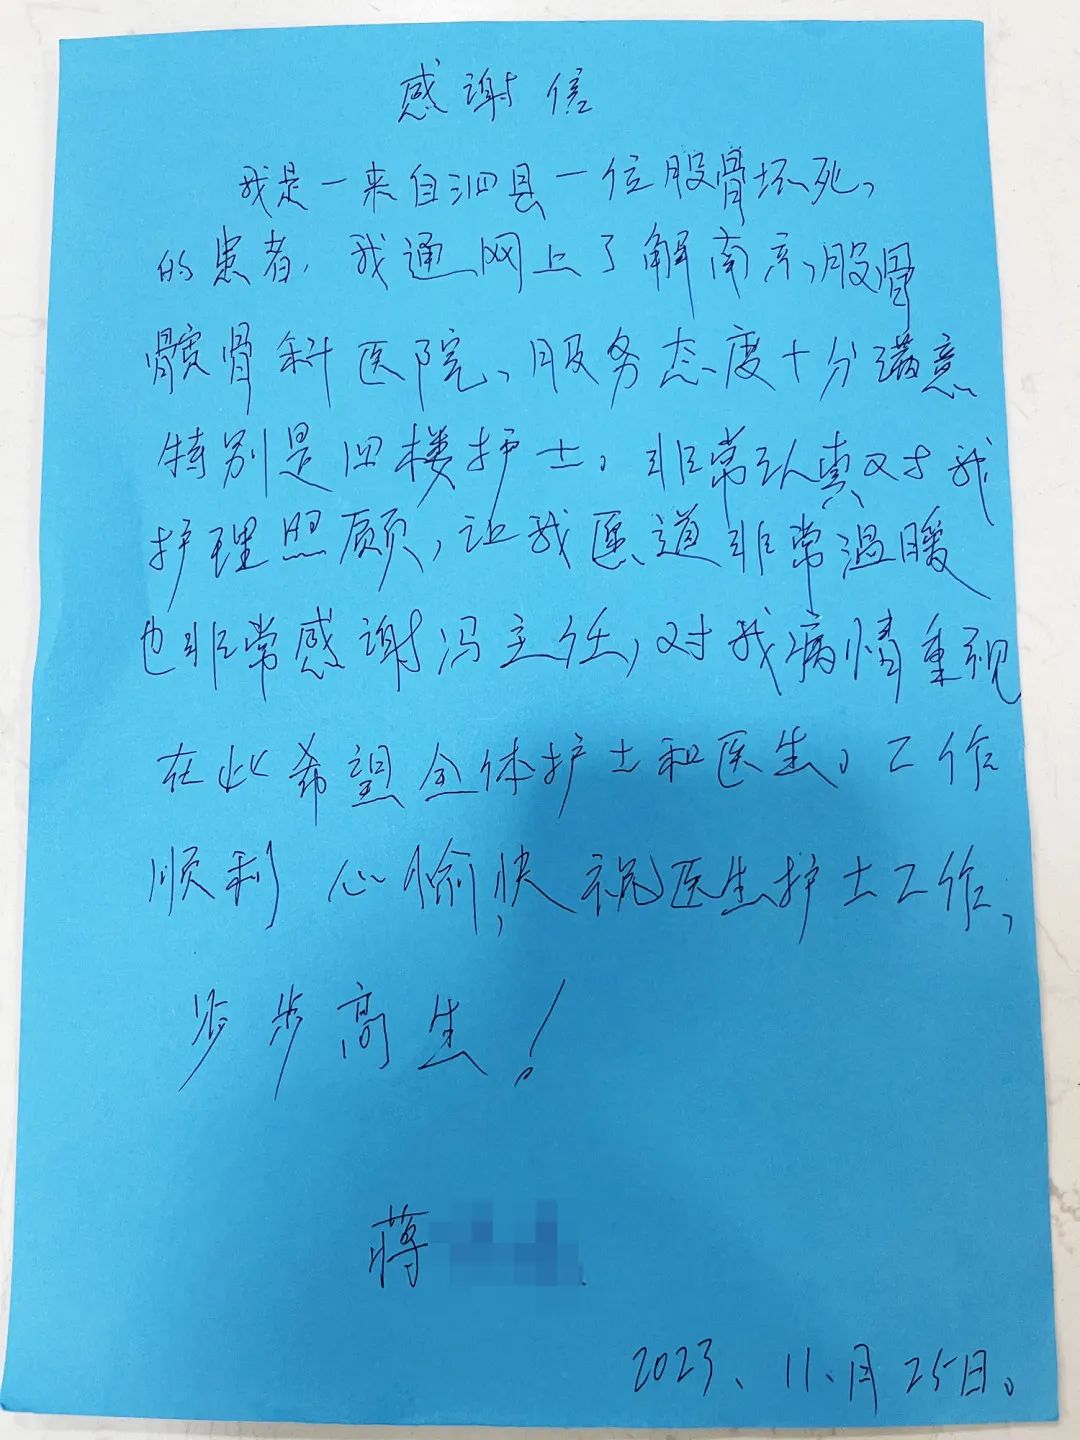 感谢信
我是一来自泗县一位股骨坏死、
的患者、我通网上了解南京、股骨
髋骨科医院、服务态度十分满意
特别是四楼护士。非常认真对我
护理照顾,让我医道非常温暖
也非常感谢冯主任,对我病情重视
在此希望全体护士和医生、工作
顺利 心愉快,祝医生护士工作,
步步高生!
蒋
2023、11、月25日。